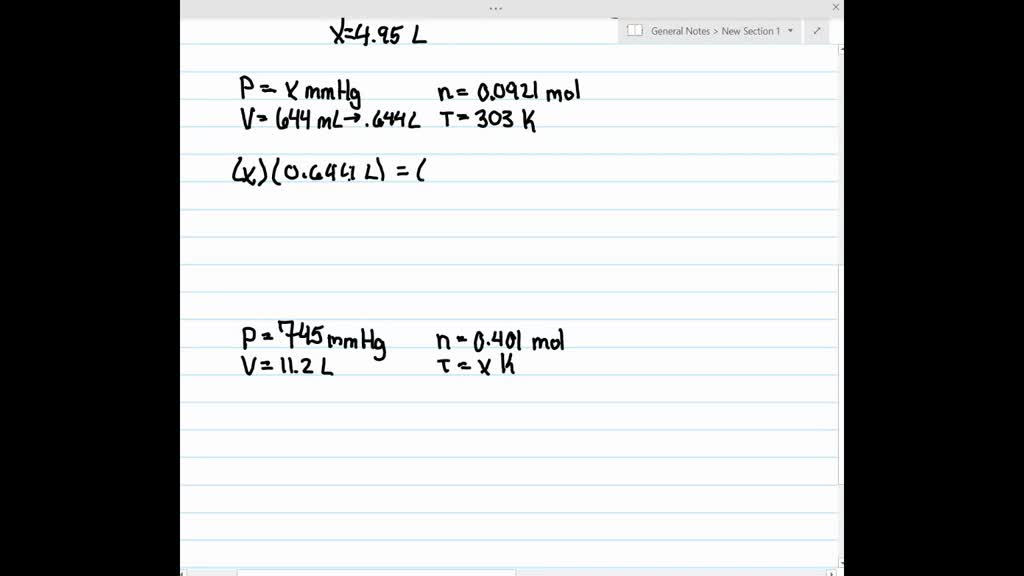 x=4.95 L
General Notes > New Section 1
P = x mmHg n = 0.0921 mol
V = 644 mL → .644L T = 303 K
(x)(0.644 L) = (
P = 745 mmHg n = 0.401 mol
V = 11.2 L T = x K